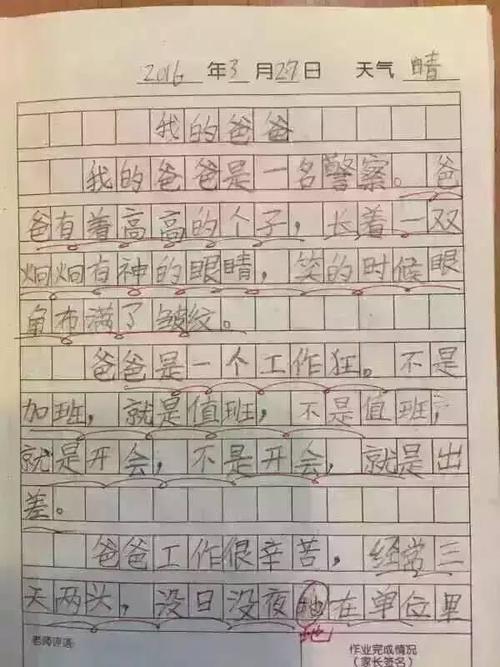 2016 年 3 月 27 日 天气 晴
我的爸爸
我的爸爸是一名警察。爸
爸有着高高的个子，长着一双
炯炯有神的眼睛，笑的时候眼
角布满了皱纹。
爸爸是一个工作狂。不是
加班，就是值班，不是值班，
就是开会，不是开会，就是出
差。
爸爸工作很辛苦，经常三
天两头，没日没夜地在单位里
地
老师评语： 作业完成情况
（家长签名）